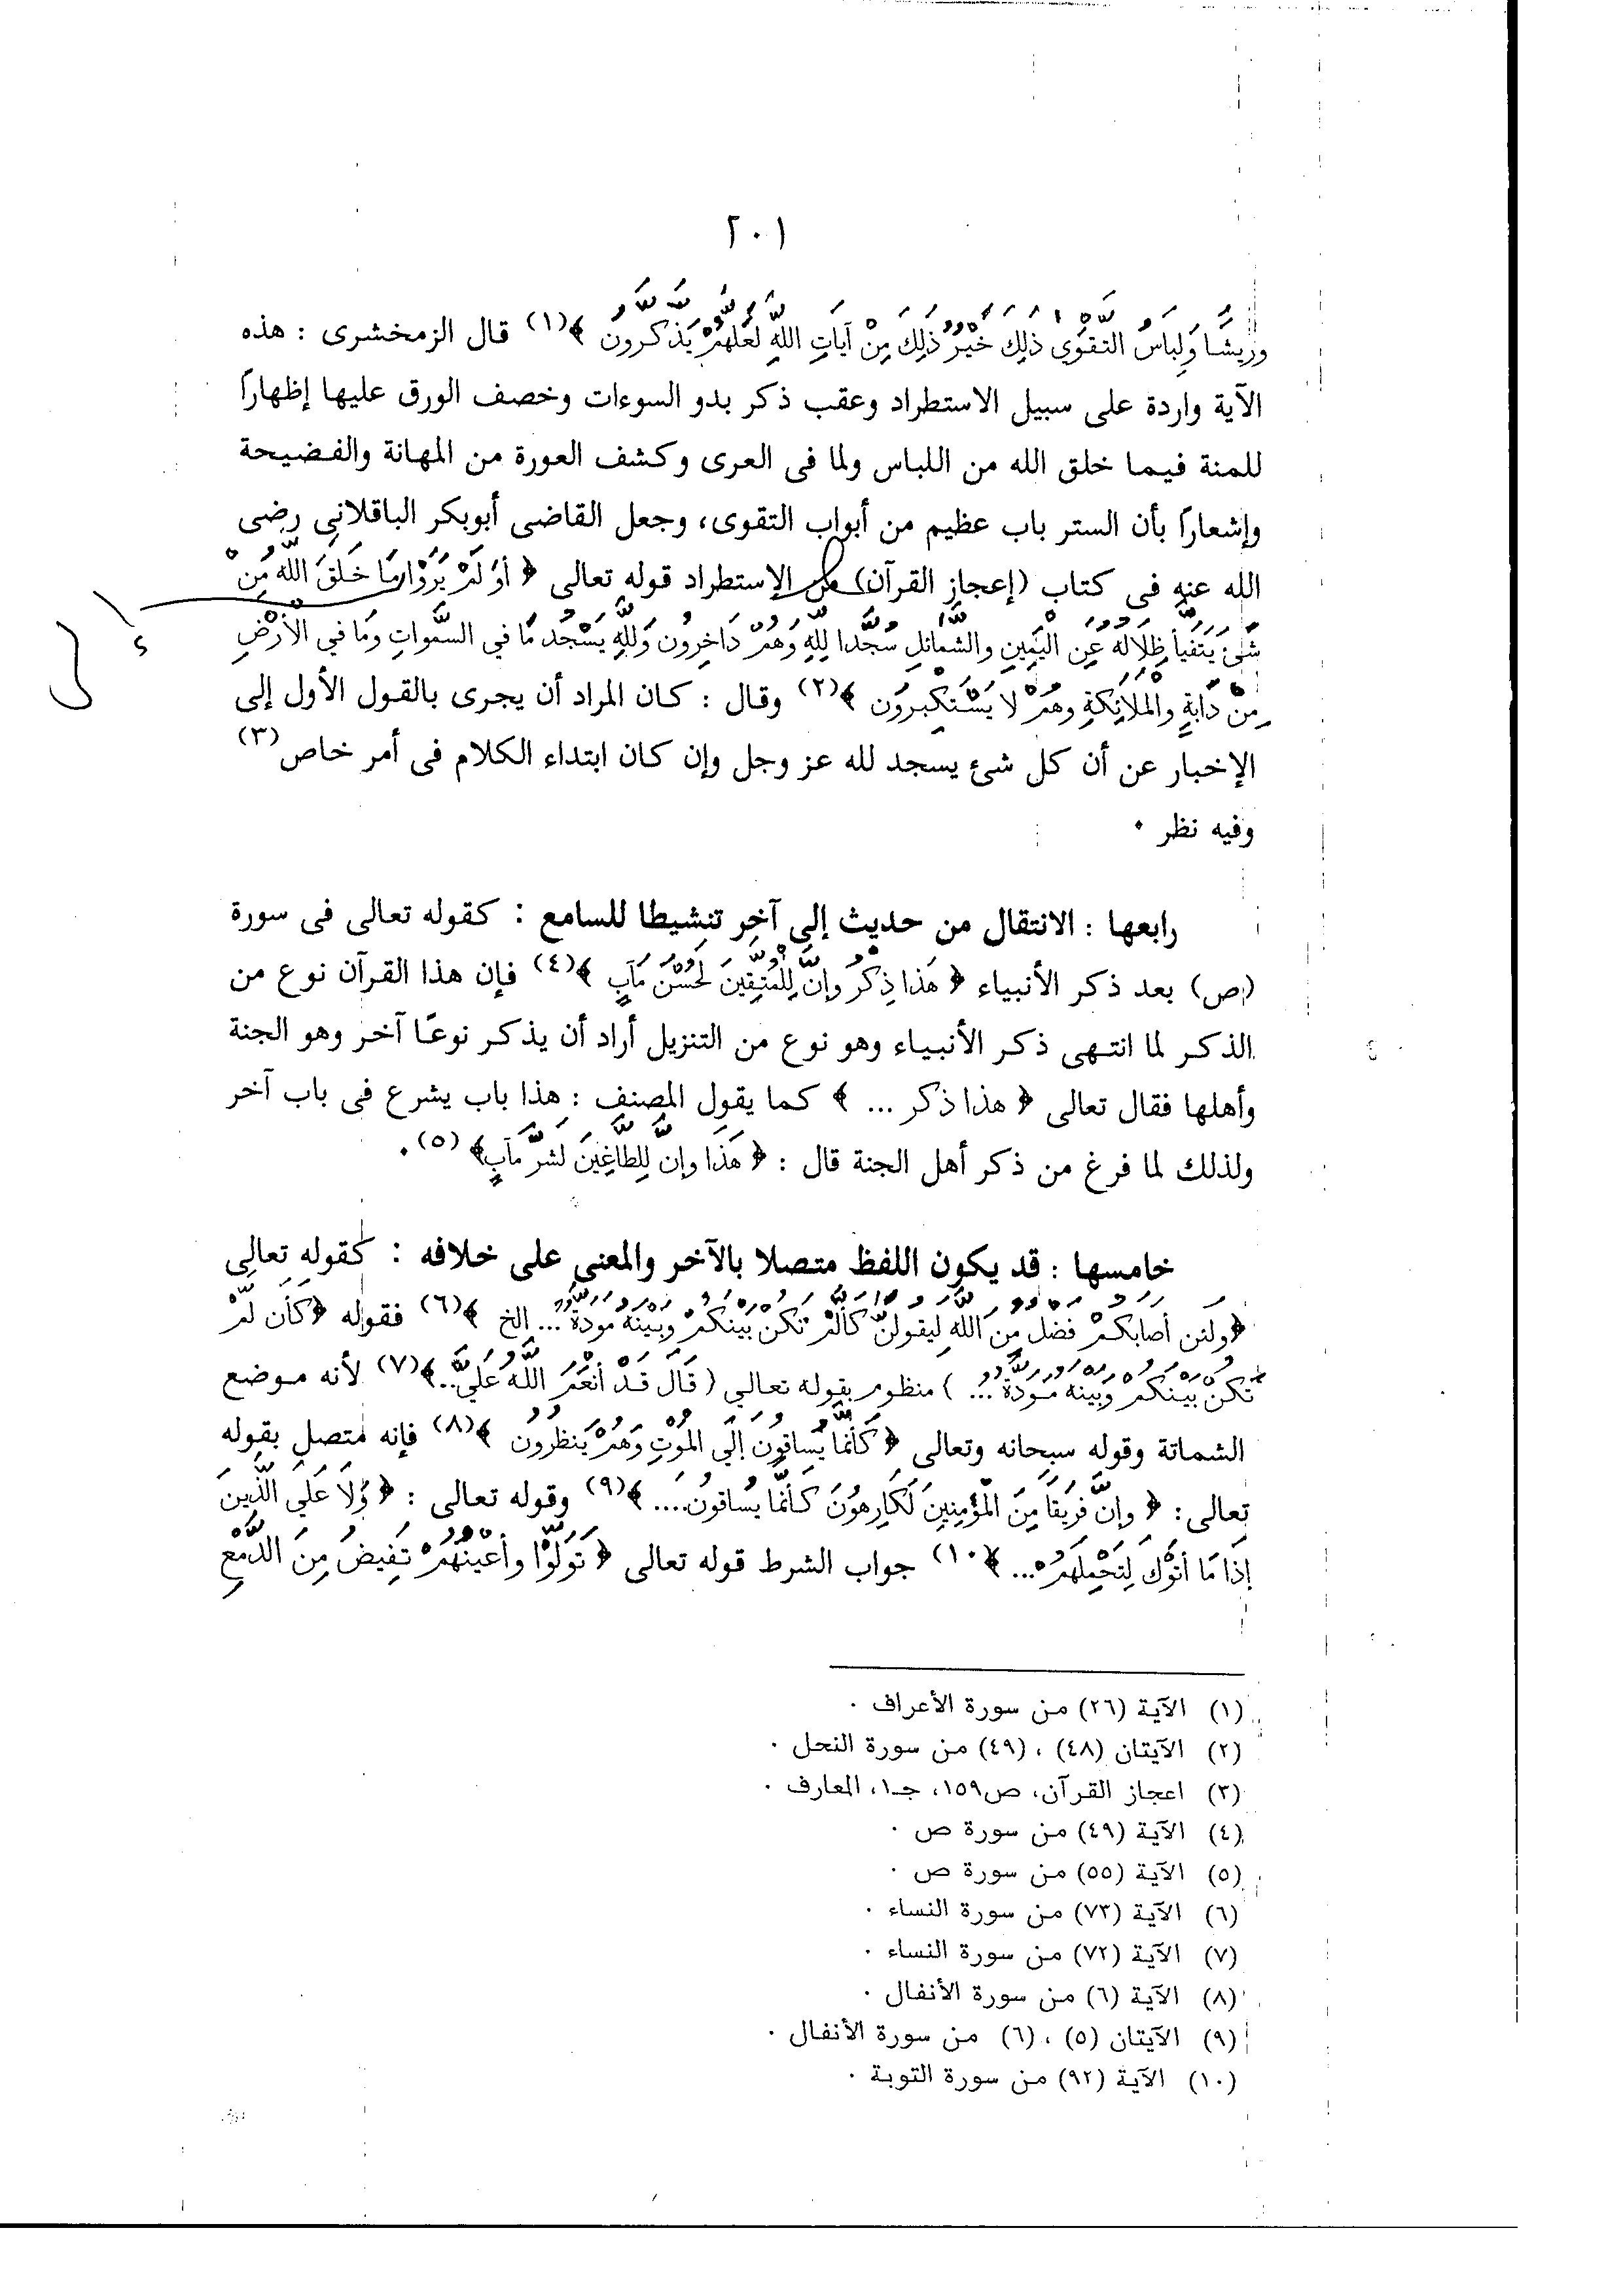 ٢٠١
وَرِيشًا وَلِبَاسُ التَّقْوَىٰ ذَلِكَ خَيْرٌ ذَلِكَ مِنْ آيَاتِ اللَّهِ لَعَلَّهُمْ يَذَّكَّرُونَ ﴾(١) قال الزمخشرى : هذه
الآية واردة على سبيل الاستطراد وعقب ذكر بدو السوءات وخصف الورق عليها إظهارًا
للمنة فيما خلق الله من اللباس ولما فى العرى وكشف العورة من المهانة والفضيحة
وإشعارًا بأن الستر باب عظيم من أبواب التقوى، وجعل القاضى أبوبكر الباقلانى رضى
الله عنه فى كتاب (إعجاز القرآن) من الإستطراد قوله تعالى ﴿ أَوَلَمْ يَرَوْا مَا خَلَقَ اللَّهُ مِنْ
شَىْءٍ يَتَفَيَّأُ ظِلَالُهُ عَنِ الْيَمِينِ والشَّمَائلِ سُجَّدا لِلَّهِ وَهُمْ دَاخِرُون وَلِلَّهِ يَسْجُد مَا في السَّموات وَمَا في الأَرْضِ
مِنْ دَابَةٍ والْمَلاَئِكَةِ وهُمْ لا يَسْتَكْبِرُون ﴾(٢) وقال : كان المراد أن يجرى بالقول الأول إلى
الإخبار عن أن كل شئ يسجد لله عز وجل وإن كان ابتداء الكلام فى أمر خاص(٣)
وفيه نظر .
رابعها : الانتقال من حديث إلى آخر تنشيطا للسامع : كقوله تعالى فى سورة
(ص) بعد ذكر الأنبياء ﴿ هَذا ذِكْرٌ وإنَّ لِلْمُتَّقِينَ لَحُسْنَ مَآبٍ ﴾(٤) فإن هذا القرآن نوع من
الذكر لما انتهى ذكر الأنبياء وهو نوع من التنزيل أراد أن يذكر نوعًا آخر وهو الجنة
وأهلها فقال تعالى ﴿ هذا ذكر ... ﴾ كما يقول المصنف : هذا باب يشرع فى باب آخر
ولذلك لما فرغ من ذكر أهل الجنة قال : ﴿ هَذَا وإنَّ لِلطَّاغِينَ لَشَرَّ مَآبٍ﴾ (٥) .
خامسها : قد يكون اللفظ متصلا بالآخر والمعنى على خلافه : كقوله تعالى
﴿ولَئن أصَابكُمْ فَضْلٌ مِّنَ اللَّهِ لَيقولَنَّ كَأَلَّمْ تَكُنْ بَيْنَكُمْ وبَيْنَهُ مَوَدَّةٌ ... الخ ﴾(٦) فقوله ﴿كَأَن لَّمْ
تَكُنْ بَيْنَكُمْ وَبَينَهُ مَوَدَّةٌ ... ) منظوم بقوله تعالى ( قَالَ قَدْ أنْعَمَ اللَّهُ عَلَيَّ..﴾(٧) لأنه موضع
الشماتة وقوله سبحانه وتعالى ﴿ كَأَنَّمَا يُسَاقُونَ إلَي المَوْتِ وَهُمْ يَنظُرُونَ ﴾(٨) فإنه متصل بقوله
تعالى: ﴿ وإنَّ فَرِيقَاً مِنَ الْمُؤْمِنِينَ لَكَارِهُونَ كَأَنَّمَا يُسَاقُونَ.... ﴾(٩) وقوله تعالى : ﴿ وَلاَ عَلَى الَّذِينَ
إذَا مَا أتَوْكَ لِتَحْمِلَهُمْ ... ﴾(١٠) جواب الشرط قوله تعالى ﴿ تَوَلَّوْا وأعْيُنُهُمْ تَفِيضُ مِنَ الدَّمْعِ
(١) الآية (٢٦) من سورة الأعراف .
(٢) الآيتان (٤٨) ، (٤٩) من سورة النحل .
(٣) اعجاز القرآن، ص١٥٩، جـ١، المعارف .
(٤) الآية (٤٩) من سورة ص .
(٥) الآية (٥٥) من سورة ص .
(٦) الآية (٧٣) من سورة النساء .
(٧) الآية (٧٢) من سورة النساء .
(٨) الآية (٦) من سورة الأنفال .
(٩) الآيتان (٥) ، (٦) من سورة الأنفال .
(١٠) الآية (٩٢) من سورة التوبة .